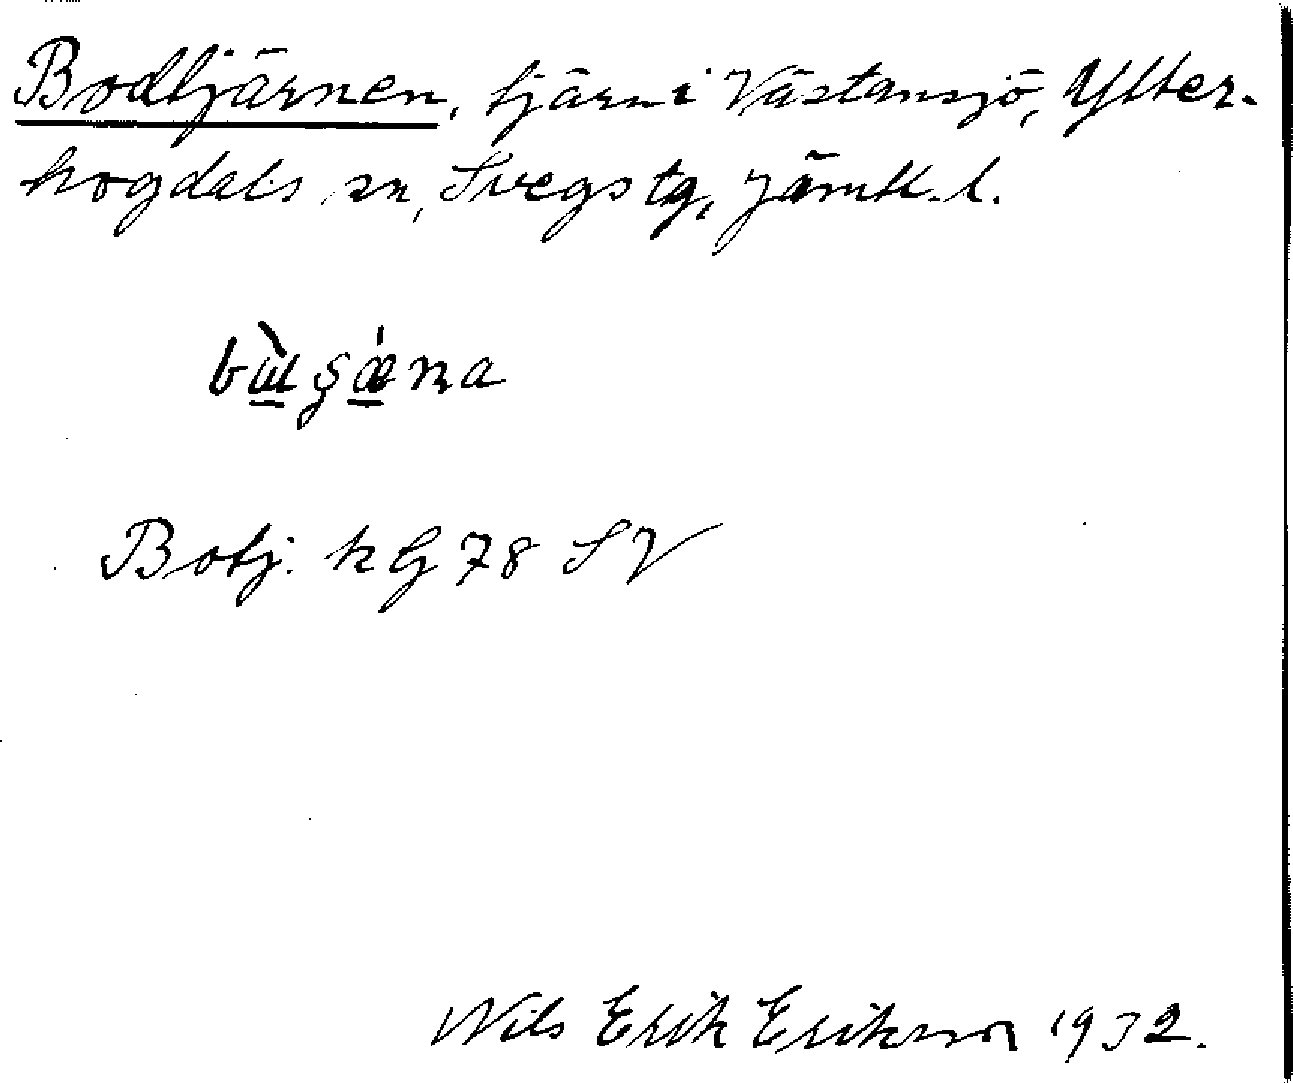 Bodtjärnen, tjärn i Västansjö, Ytter-
hogdals sn, Svegs tg, Jämtl. l.
Botj. k G 78 SV
Nils Erik Erikson 1932.